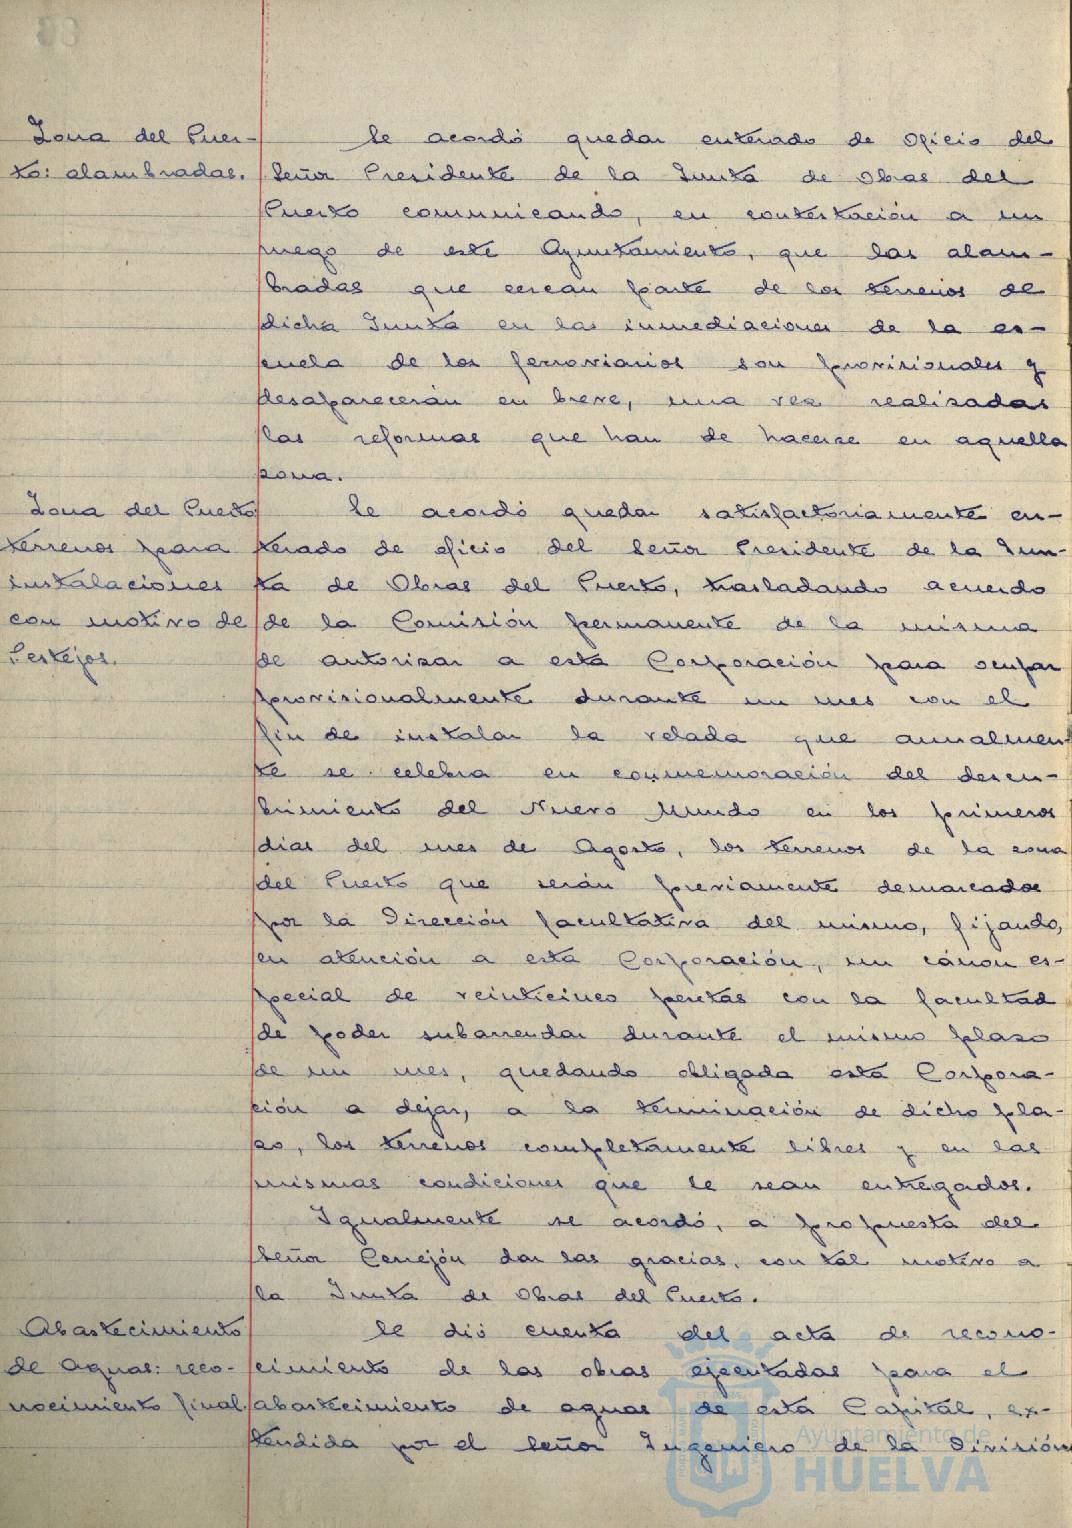 Zona del Puer-
to: alambradas.
Se acordó quedar enterado de oficio del
Señor Presidente de la Junta de Obras del
Puerto comunicando, en contestación a un
ruego de este Ayuntamiento, que las alam-
bradas que cercan parte de los terrenos de
dicha Junta en las inmediaciones de la es-
cuela de los ferroviarios son provisionales y
desaparecerán en breve, una vez realizadas
las reformas que han de hacerse en aquella
zona.
Zona del Puerto
terrenos para
instalaciones
con motivo de
festejos.
Se acordó quedar satisfactoriamente en-
terado de oficio del Señor Presidente de la Jun-
ta de Obras del Puerto, trasladando acuerdo
de la Comisión permanente de la misma
de autorizar a esta Corporación para ocupar
provisionalmente durante un mes con el
fin de instalar la velada que anualmen-
te se celebra en conmemoración del descu-
brimiento del Nuevo Mundo en los primeros
dias del mes de Agosto, los terrenos de la zona
del Puerto que serán previamente demarcados
por la Dirección facultativa del mismo, fijando,
en atención a esta Corporación, un cánon es-
pecial de veinticinco pesetas con la facultad
de poder subarrendar durante el mismo plazo
de un mes, quedando obligada esta Corpora-
ción a dejar, a la terminación de dicho pla-
zo, los terrenos completamente libres y en las
mismas condiciones que le sean entregados.
Igualmente se acordó, a propuesta del
Señor Cerrejón dar las gracias, con tal motivo a
la Junta de Obras del Puerto.
Abastecimiento
de aguas: reco-
nocimiento final.
Se dió cuenta del acta de recono-
cimiento de las obras ejecutadas para el
abastecimiento de aguas de esta Capital, ex-
tendida por el Señor Ingeniero de la División
Ayuntamiento de
HUELVA